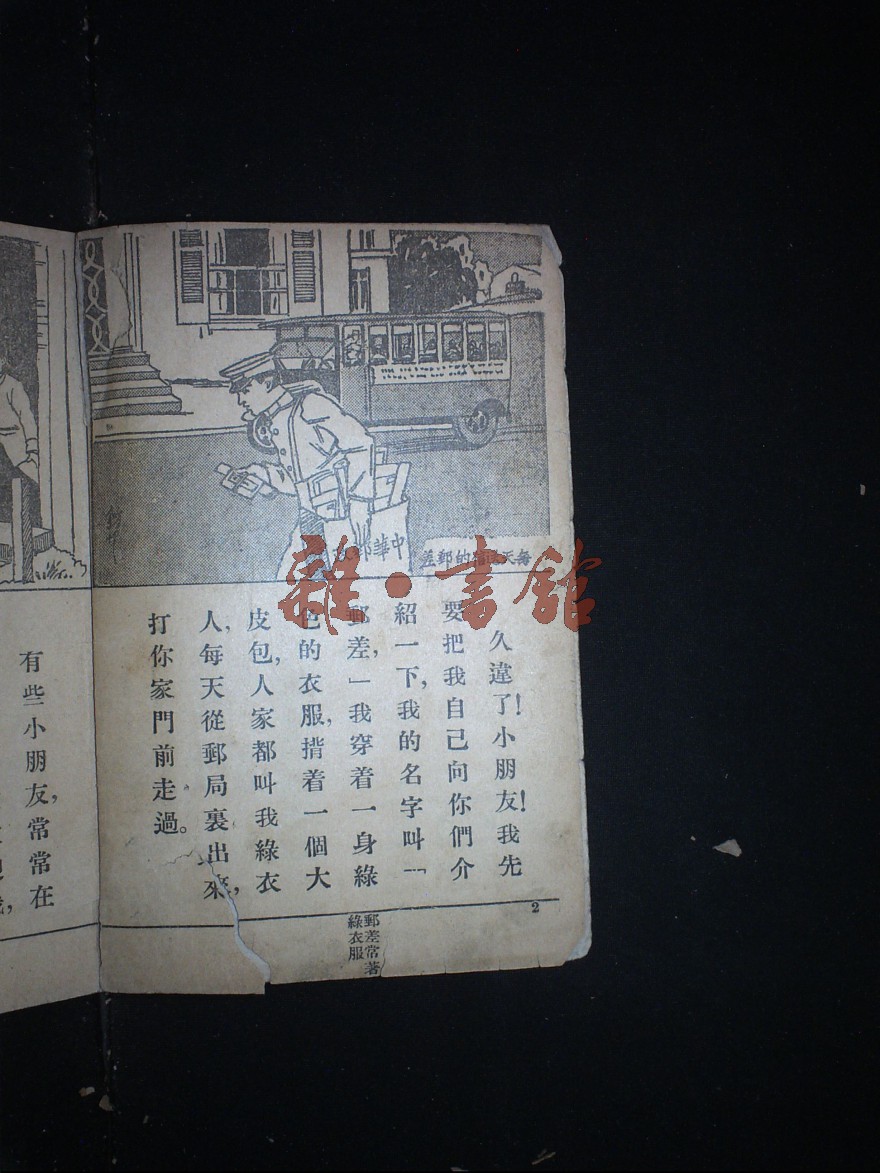 每天送信的郵差
中華郵政
久違了！小朋友！我先
要把我自己向你們介
紹一下，我的名字叫「
郵差，」我穿着一身綠
色的衣服，揹着一個大
皮包，人家都叫我綠衣
人，每天從郵局裏出來，
打你家門前走過。
2
郵差常著
綠衣服
有些小朋友，常常在
雜·書館